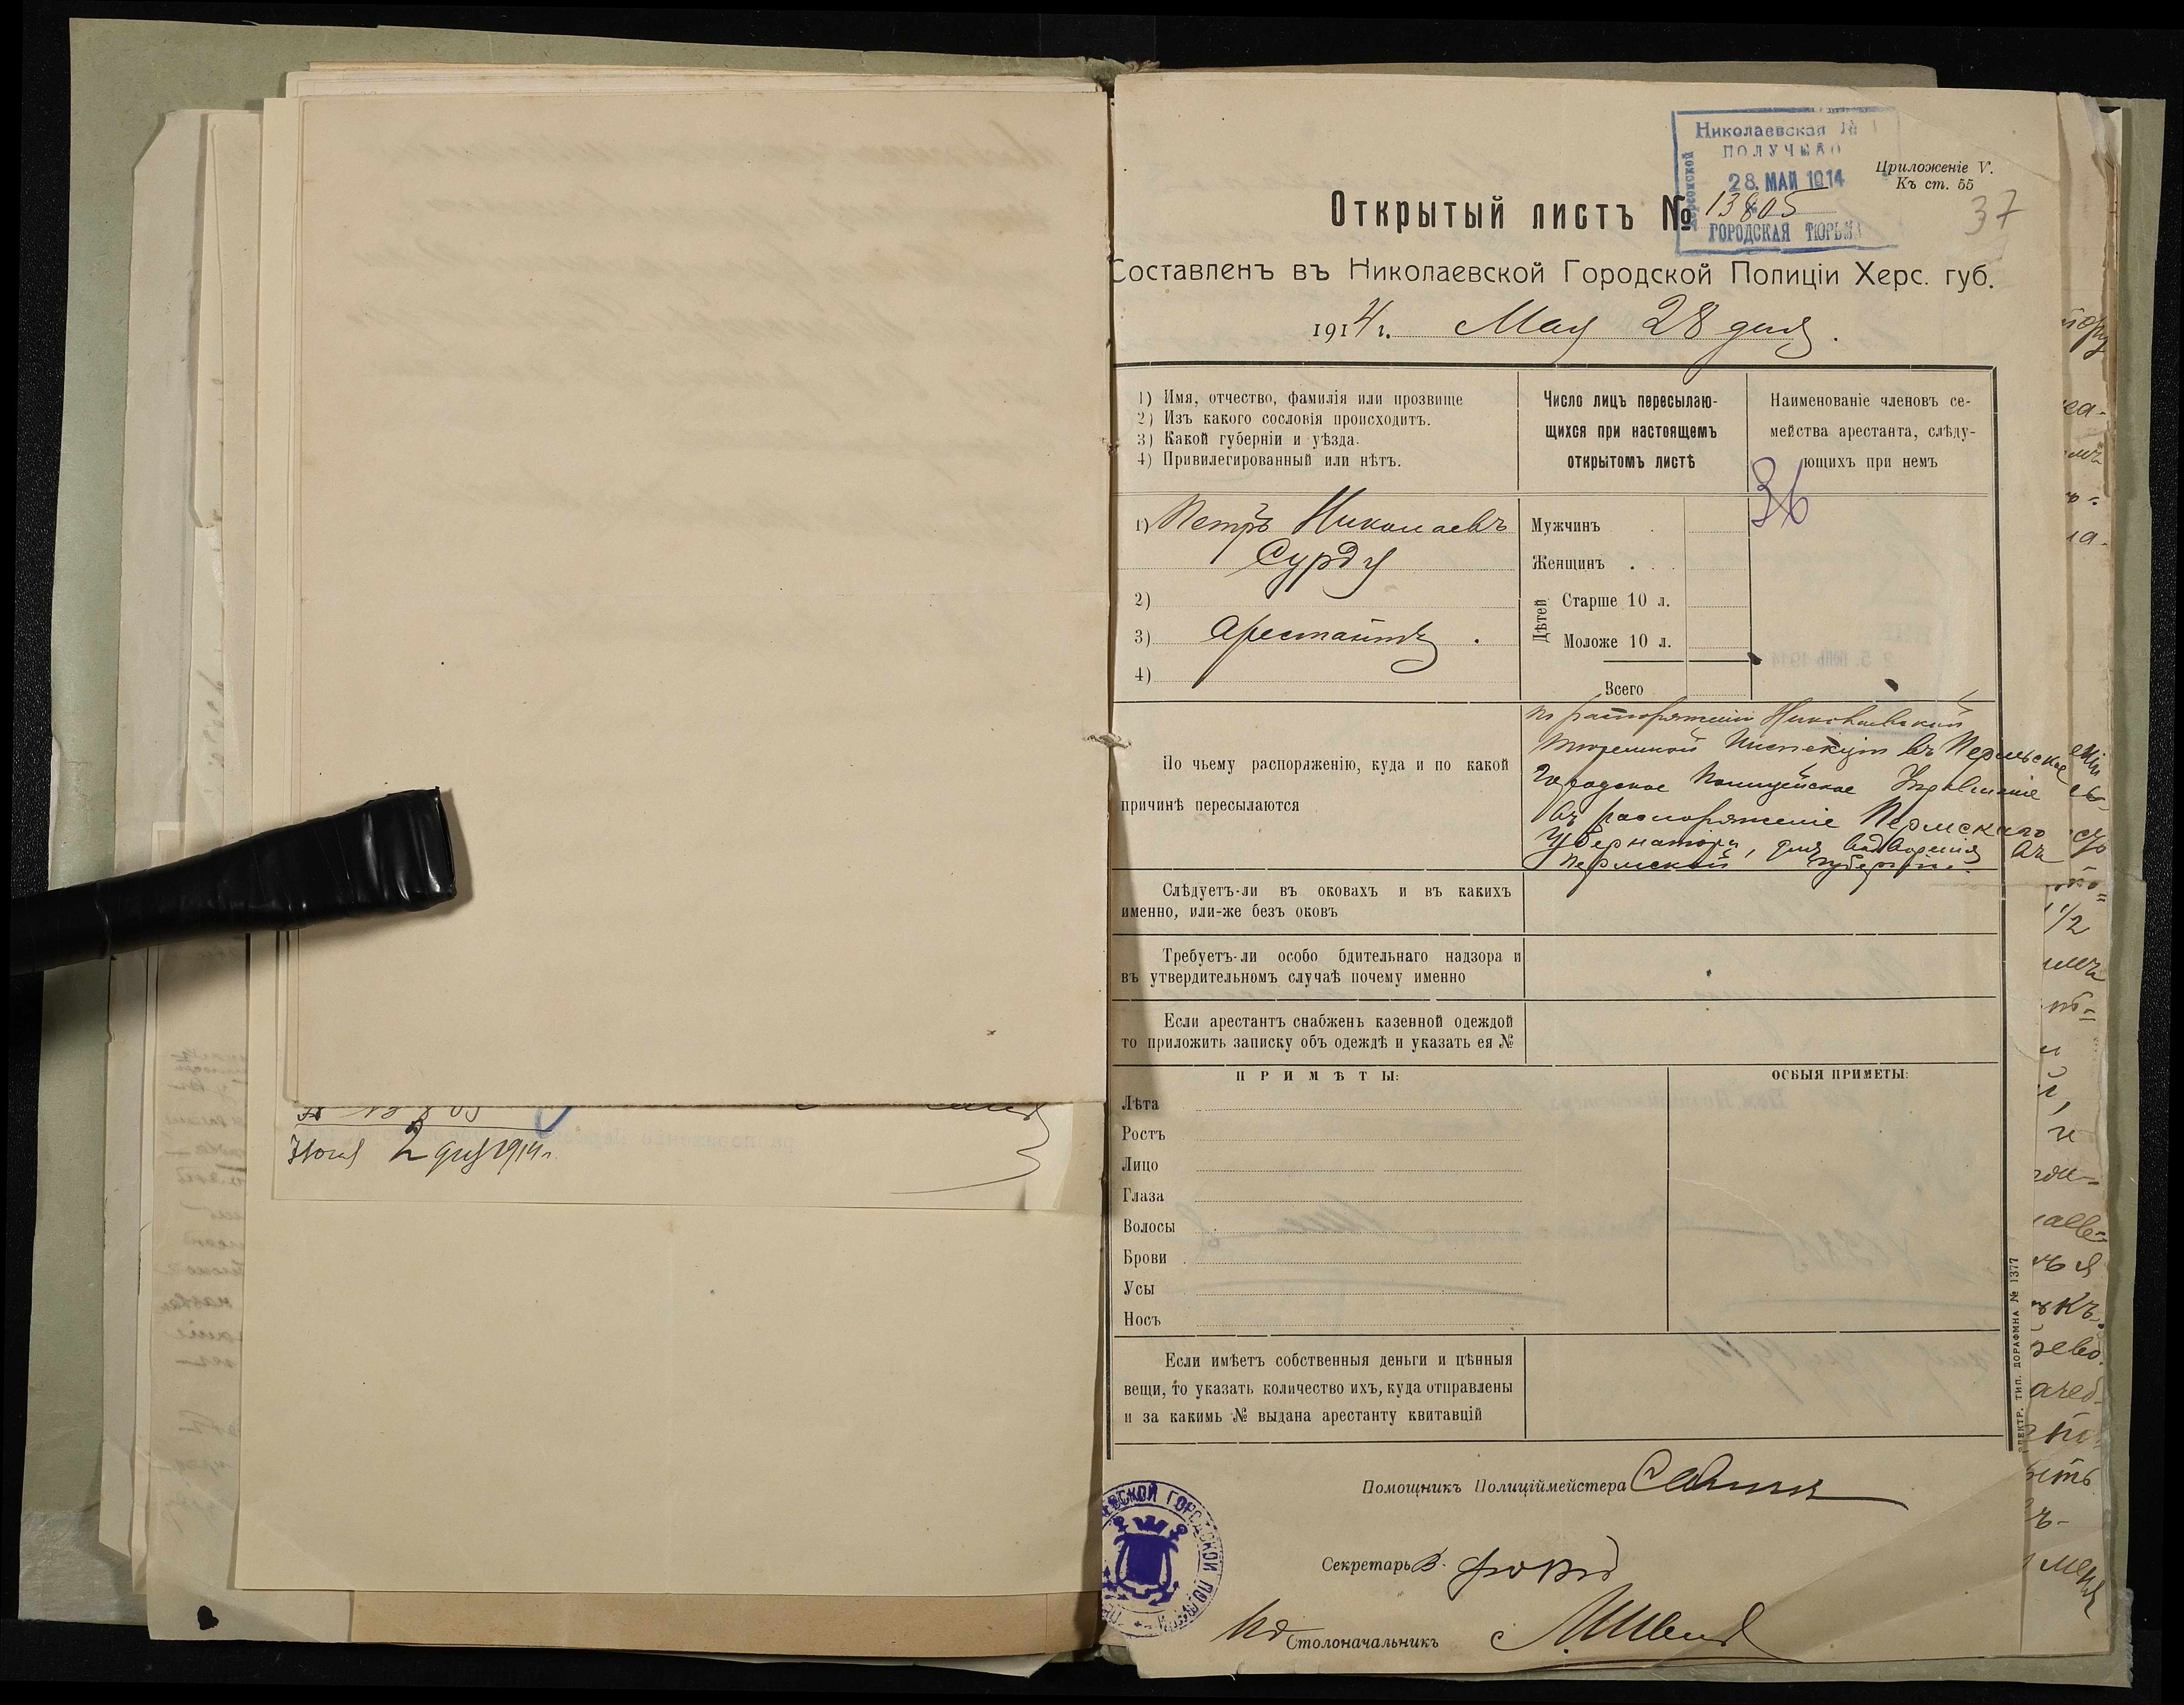 Николаевская №
ПОЛУЧЕНО
28. МАЙ 1914
ГОРОДСКАЯ ТЮРЬМА
Херсонской
Приложеніе V.
Къ ст. 55
37
Открытый листъ № 13805
Составленъ въ Николаевской Городской Полиціи Херс. губ.
1914 г. Мая 28 дня.
1) Имя, отчество, фамилія или прозвище
2) Изъ какого сословія происходитъ.
3) Какой губерніи и уѣзда.
4) Привилегированный или нѣтъ.
Число лицъ пересылаю-
щихся при настоящемъ
открытомъ листѣ
Наименованіе членовъ се-
мейства арестанта, слѣду-
ющихъ при немъ
36
1) Петръ Николаевъ
Сурду
2)
3) арестантъ.
4)
Мужчинъ
Женщинъ
Дѣтей
Старше 10 л.
Моложе 10 л.
Всего
По чьему распоряженію, куда и по какой
причинѣ пересылаются
По распоряженію Николаевской
Тюремной Инспекціи въ Пермское
Городское Полицейское Управленіе
въ распоряженіе Пермскаго
Губернатора, для водворенія въ
Пермской губерніи.
Слѣдуетъ-ли въ оковахъ и въ какихъ
именно, или-же безъ оковъ
Требуетъ-ли особо бдительнаго надзора и
въ утвердительномъ случаѣ почему именно
Если арестантъ снабженъ казенной одеждой
то приложить записку объ одеждѣ и указать ея №
ПРИМѢТЫ:
ОСБЫЯ ПРИМЕТЫ:
Лѣта
Ростъ
Лицо
Глаза
Волосы
Брови
Усы
Носъ
Если имѣетъ собственныя деньги и цѣнныя
вещи, то указать количество ихъ, куда отправлены
и за какимъ № выдана арестанту квитавцій
ЭЛЕКТР. ТИП. ДОРАФМНА № 1377
Помощникъ Полиціймейстера
Секретарь В.
Ид Столоначальникъ
ЕВСКОЙ ГОРОДСКОЙ ПОЛИЦІИ
№ 13805
Іюня 2 дня 1914 г.